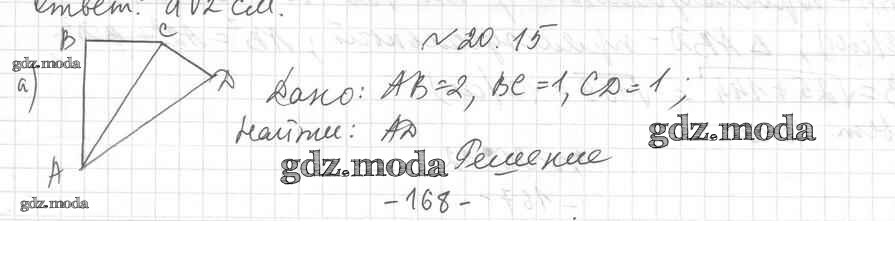 Ответ: 4√2 см.
№ 20.15
B C
gdz.moda
а)
D
Дано: AB=2, BC=1, CD=1;
Найти: AD
gdz.moda
A
gdz.moda Решение
gdz.moda
-168-